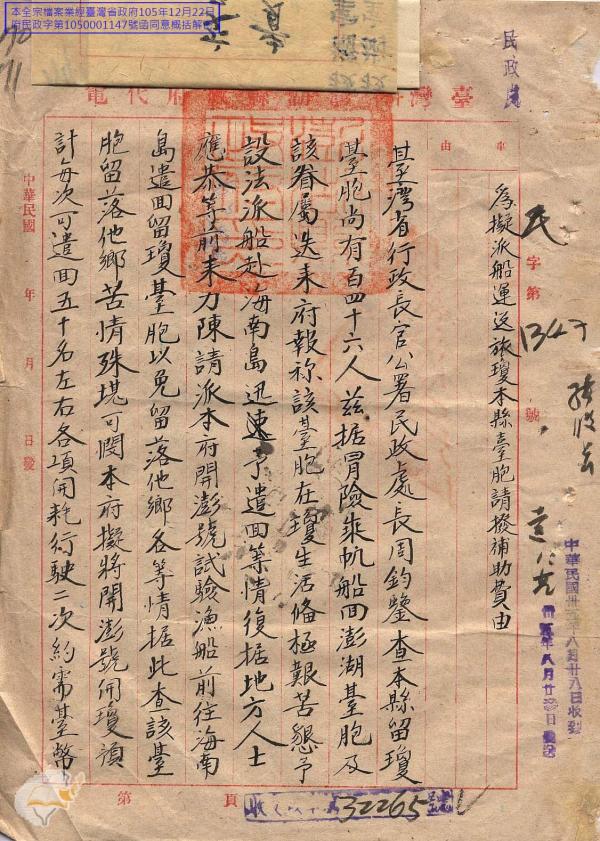 本全宗檔案業經臺灣省政府105年12月22日
府民政字第1050001147號函同意概括解
民政處
事由
為擬派船運送旅瓊本縣臺胞請撥補助費由
民字第1347號
臺灣省行政長官公署民政處長周鈞鑒查本縣留瓊
臺胞尚有百四十六人茲據冒險乘帆船回澎湖臺胞及
該眷屬迭來府報稱該臺胞在瓊生活備極艱苦懇予
設法派船赴海南島迅速予遣回等情復据地方人士
應恭等前来力陳請派本府開澎號試驗漁船前往海南
島遣回留瓊臺胞以免留落他鄉各等情据此查該臺
胞留落他鄉苦情殊堪可憫本府擬將開澎號開瓊預
計每次可遣回五十名左右各項開耗行駛二次約需臺幣
中華民國 年 月 日發
第 頁
32265號